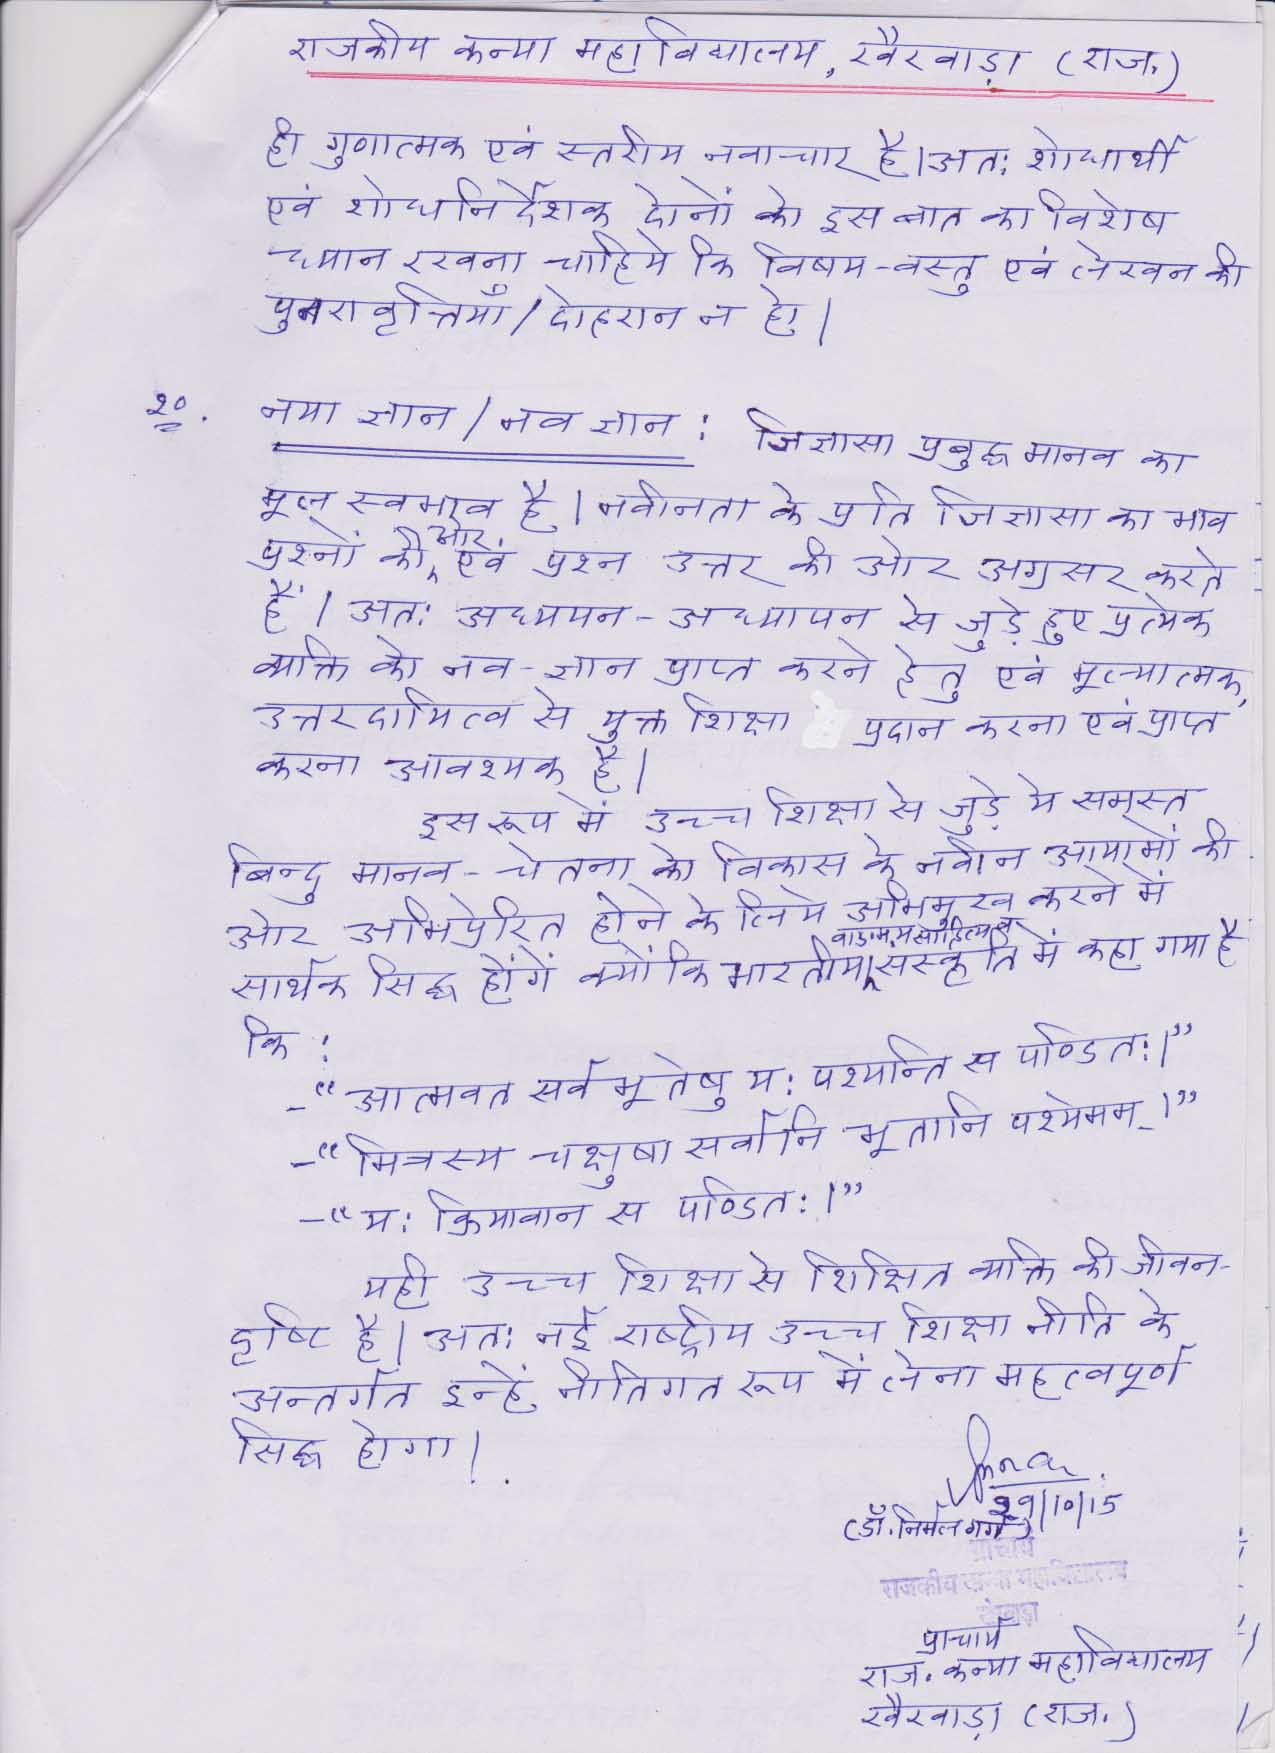 राजकीय कन्या महाविद्यालय, खैरवाड़ा (राज.)
ही गुणात्मक एवं स्तरीय नवाचार है। अतः शोधार्थी
एवं शोधनिर्देशक दोनों को इस बात का विशेष
ध्यान रखना चाहिये कि विषय-वस्तु एवं लेखन की
पुनरावृत्तियाँ/दोहरान न हो।
२०. नया ज्ञान / नव ज्ञान : जिज्ञासा प्रबुद्ध मानव का
मूल स्वभाव है। नवीनता के प्रति जिज्ञासा का भाव
प्रश्नों की ओर एवं प्रश्न उत्तर की ओर अग्रसर करते
हैं। अतः अध्ययन-अध्यापन से जुड़े हुए प्रत्येक
व्यक्ति को नव-ज्ञान प्राप्त करने हेतु एवं मूल्यात्मक,
उत्तरदायित्व से युक्त शिक्षा प्रदान करना एवं प्राप्त
करना आवश्यक है।
इस रूप में उच्च शिक्षा से जुड़े ये समस्त
बिन्दु मानव-चेतना को विकास के नवीन आयामों की
ओर अभिप्रेरित होने के लिये अभिमुख करने में
सार्थक सिद्ध होंगें क्योंकि भारतीय वाङमय साहित्य एवं संस्कृति में कहा गया है
कि :
-“आत्मवत सर्वभूतेषु यः पश्यन्ति स पण्डितः।”
-“मित्रस्य चक्षुषा सर्वानि भूतानि पश्येमम्।”
-“यः क्रियावान स पण्डितः।”
यही उच्च शिक्षा से शिक्षित व्यक्ति की जीवन-
दृष्टि है। अतः नई राष्ट्रीय उच्च शिक्षा नीति के
अन्तर्गत इन्हें नीतिगत रूप में लेना महत्वपूर्ण
सिद्ध होगा।
29/10/15
(डॉ. निर्मल गर्ग)
प्राचार्य
राजकीय कन्या महाविद्यालय
खेरवाड़ा
प्राचार्य
राज. कन्या महाविद्यालय
खैरवाड़ा (राज.)